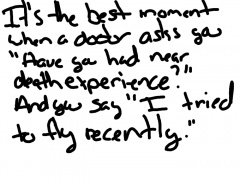 It's the best moment
when a doctor asks you
"Have you had near
death experience?"
And you say "I tried
to fly recently."